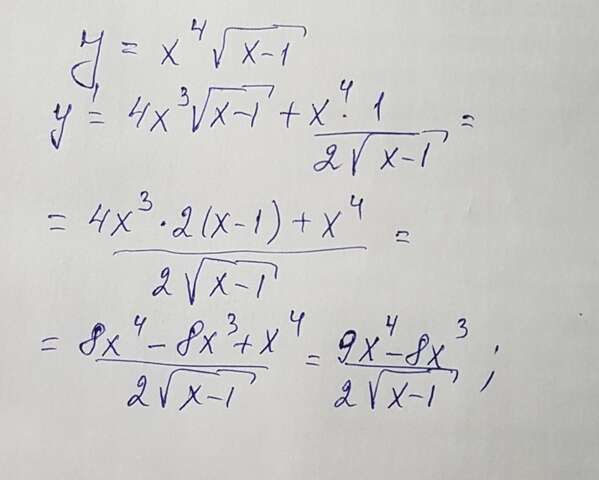 y = x⁴√(x-1)
y' = 4x³√(x-1) + x⁴·1/(2√(x-1)) =
= (4x³·2(x-1)+x⁴)/(2√(x-1)) =
= (8x⁴-8x³+x⁴)/(2√(x-1)) = (9x⁴-8x³)/(2√(x-1));